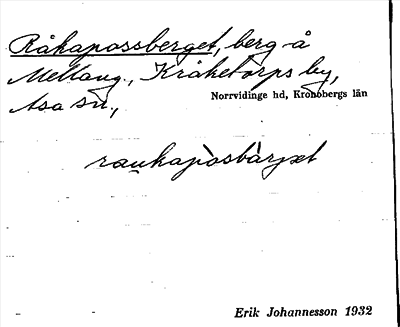 Råkapossberget, berg å
Mellang., Kråketorps by,
Asa sn.,
Norrvidinge hd, Kronobergs län
raukapòsbàrjət
Erik Johannesson 1932